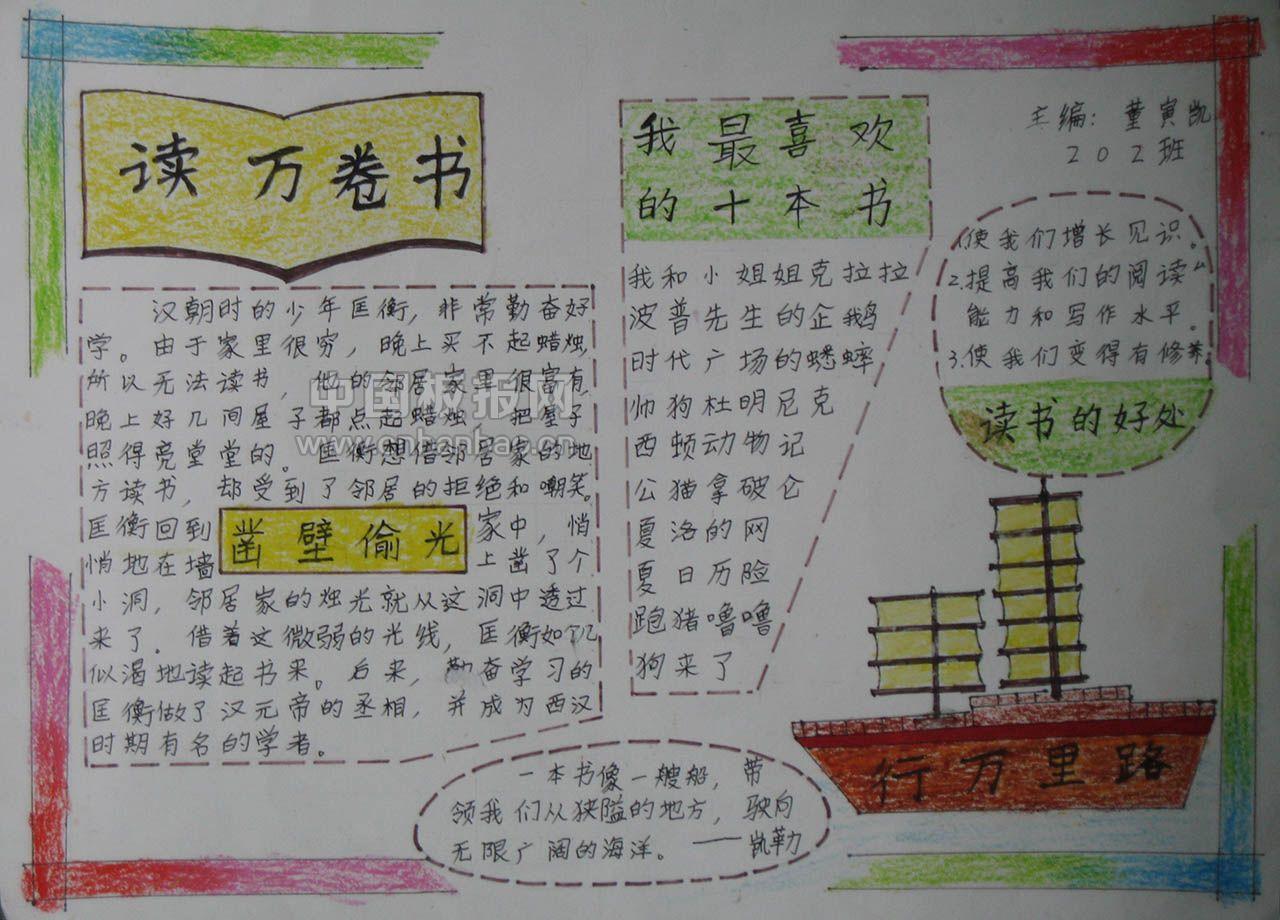 读万卷书
汉朝时的少年匡衡，非常勤奋好
学。由于家里很穷，晚上买不起蜡烛，
所以无法读书，他的邻居家里很富有，
晚上好几间屋子都点起蜡烛，把屋子
照得亮堂堂的。匡衡想借邻居家的地
方读书，却受到了邻居的拒绝和嘲笑。
匡衡回到家中，悄
悄地在墙上凿了个
凿壁偷光
小洞，邻居家的烛光就从这洞中透过
来了．借着这微弱的光线，匡衡如饥
似渴地读起书来。后来，勤奋学习的
匡衡做了汉元帝的丞相，并成为西汉
时期有名的学者。
我最喜欢
的十本书
我和小姐姐克拉拉
波普先生的企鹅
时代广场的蟋蟀
帅狗杜明尼克
西顿动物记
公猫拿破仑
夏洛的网
夏日历险
跑猪噜噜
狗来了
主编：董寅凯
202班
1.使我们增长见识。
2.提高我们的阅读
能力和写作水平。
3.使我们变得有修养。
读书的好处
行万里路
一本书像一艘船，带
领我们从狭隘的地方，驶向
无限广阔的海洋。——凯勒
中国板报网
www.cnbanbao.cn